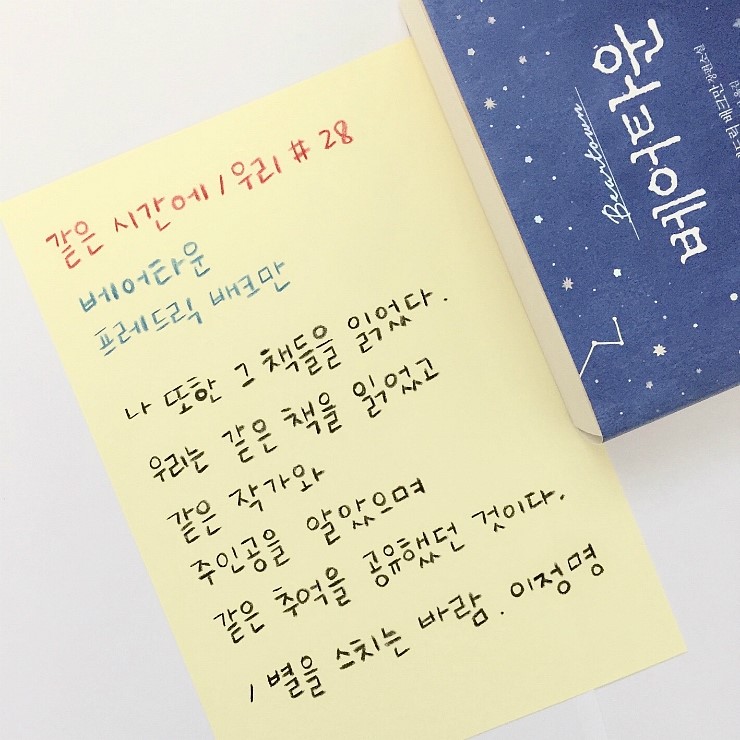 같은 시간에 / 우리 # 28
베어타운
프레드릭 배크만
나 또한 그 책들을 읽었다.
우리는 같은 책을 읽었고
같은 작가와
주인공을 알았으며
같은 추억을 공유했던 것이다.
/ 별을 스치는 바람. 이정명
베어타운
Beartown